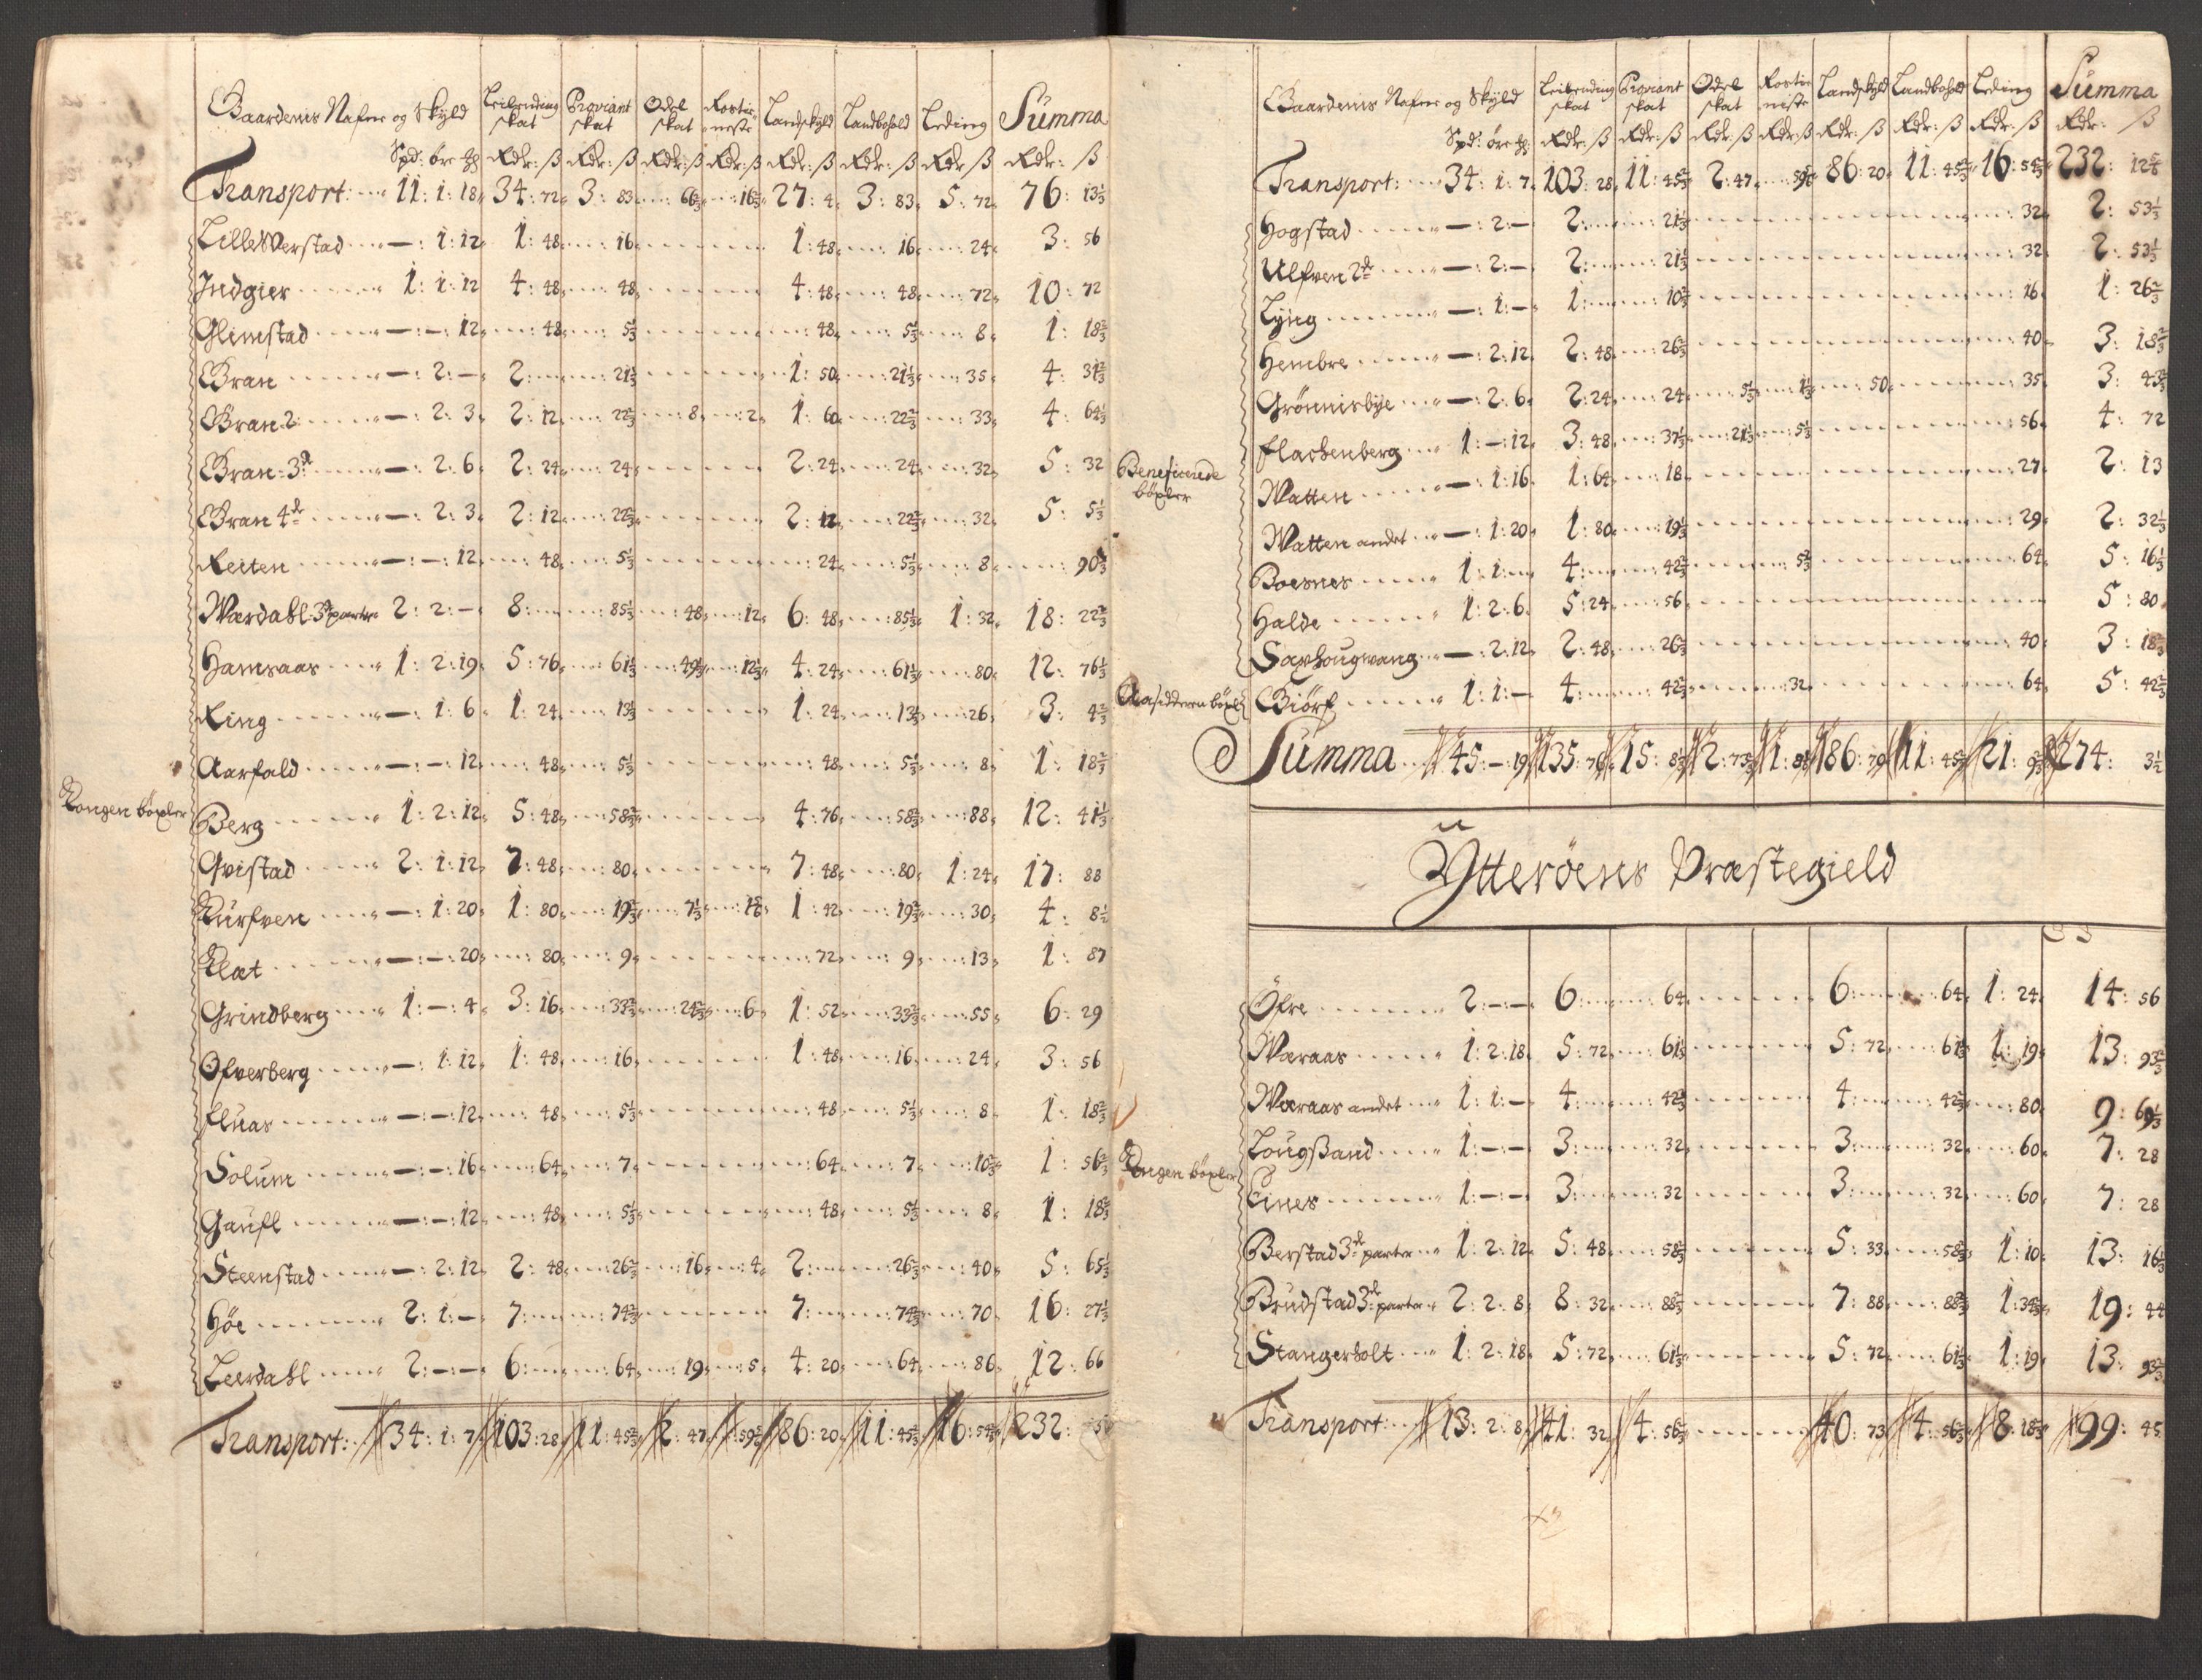 Gaardenis Nafne og Skyld Leilending skat Proviant skat Odel skat Rostie neste Landskyld Landbohold Leding Summa
Spd: øre Rdr: ß Rdr: ß Rdr: ß Rdr: ß Rdr: ß Rdr: ß Rdr ß Rdr: ß
Transport: 11: 1: 18 34: 72 3: 83 66⅔ 16⅔ 27: 4 3: 83 5: 72 76: 13⅓
Lille Werstad —: 1: 12 1: 48 16 1: 48 16 24 3: 56
Indgier 1: 1: 12 4: 48 48 4: 48 48 72 10: 72
Glimstad —:—: 12 48 5⅓ 48 5⅓ 8 1: 18⅔
Gran —: 2: — 2: 21⅓ 1: 50 21⅓ 35 4: 31⅔
Gran 2 —: 2: 3 2: 12 22⅔ 8 2 1: 60 22⅔ 33 4: 64⅓
Gran 3d —: 2: 6 2: 24 24 2: 24 24 32 5: 32
Gran 4de —: 2: 3 2: 12 22⅔ 2: 12 22⅔ 32 5: 5⅓
Reiten —:—: 12 48 5⅓ 24 5⅓ 8 90⅔
Wærdahl 3de parter 2: 2: — 8: 85⅓ 48 12 6: 48 85⅓ 1: 32 18: 22⅔
Hamsaas 1: 2: 19 5: 76 61⅓ 49⅓ 12⅓ 4: 24 61⅓ 80 12: 76⅓
Ring —: 1: 6 1: 24 13⅓ 1: 24 13⅓ 26 3: 4⅔
Aarfald —:—: 12 48 5⅓ 48 5⅓ 8 1: 18⅔
Kongen böxler
Berg 1: 2: 12 5: 48 58⅔ 4: 76 58⅔ 88 12: 41⅓
Qvistad 2: 1: 12 7: 48 80 7: 48 80 1: 24 17: 88
Kurfven —: 1: 20 1: 80 19⅔ 7⅓ 1: 42 19⅔ 30 4: 8½
Klæt —:—: 20 80 9 72 9 13 1: 87
Grindberg 1:—: 4 3: 16 33⅔ 24⅔ 6 1: 52 33⅔ 55 6: 29
Ofverberg —: 1: 12 1: 48 16 1: 48 16 24 3: 56
Fluar —:—: 12 48 5⅓ 48 5⅓ 8 1: 18⅔
Solum —:—: 16 64 7 64 7 10⅔ 1: 56⅔
Gaufl —:—: 12 48 5⅓ 48 5⅓ 8 1: 18⅔
Steenstad —: 2: 12 2: 48 26⅔ 16 4 2: 26⅔ 40 5: 65⅓
Höe 2: 1: — 7: 74⅔ 7: 74⅔ 70 16: 27⅓
Leerdahl 2:—:— 6: 64 19 5 4: 20 64 86 12: 66
Transport: 34: 1: 7 103: 28 11: 45⅔ 2: 47 59⅔ 86: 20 11: 45⅔ 16: 54⅔ 232:
Gaardenis Nafne og Skyld Leilending skat Proviant skat Odel skat Rostie neste Landskyld Landbohold Leding Summa
Spd: øre Rdr: ß Rdr: ß Rdr: ß Rdr: ß Rdr: ß Rdr: ß Rdr: ß Rdr: ß
Transport: 34: 1: 7 103: 28 11: 45⅔ 2: 47 86: 20 11: 45⅔ 16: 54⅔ 232: 12
Hogstad —: 2: — 2: 21⅓ 32 2: 53⅓
Ulfven 2de —: 2: — 2: 21⅓ 32 2: 53⅓
Lyng —: 1: — 1: 10⅔ 16 1: 26⅔
Hembre —: 2: 12 2: 48 26⅔ 40 3: 18⅔
Grönnisbye —: 2: 6 2: 24 24 5⅓ 1⅓ 50 35 3: 43⅔
Flackenberg 1:—: 12 3: 48 37⅓ 21⅓ 5⅓ 56 4: 72
Beneficerede böxler
Watten —: 1: 16 1: 64 18 27 2: 13
Watten andet —: 1: 20 1: 80 19⅓ 29 2: 32⅓
Boesnes 1: 1: — 4: 42⅔ 5⅔ 64 5: 16⅓
Halde 1: 2: 6 5: 24 56 5: 80
Saxhougwang —: 2: 12 2: 48 26⅔ 40 3: 18⅔
Biörf 1: 1: — 4: 42⅔ 32 64 5: 42⅔
Summa 45:—: 19 135: 76 15: 8⅓ 2: 73⅔ 1: 86: 79 11: 45⅔ 21: 9⅔ 274: 3½
Ytteröens Præstegield
Öfre 2:—:— 6: 64 6: 64 1: 24 14: 56
Wæraas 1: 2: 18 5: 72 61⅓ 5: 72 61⅓ 1: 19 13: 93⅔
Wæraas andet 1: 1: — 4: 42⅔ 4: 42⅔ 80 9: 69⅓
Lougsand 1:—:— 3: 32 3: 32 60 7: 28
Kongen böxler
Eines 1:—:— 3: 32 3: 32 60 7: 28
Berstad 3de parter 1: 2: 12 5: 48 58⅔ 5: 33 58⅔ 1: 10 13: 16⅓
Brudstad 3de parter 2: 2: 8 8: 32 88⅔ 7: 88 88⅔ 1: 34⅔ 19: 44
Stangerholt 1: 2: 18 5: 72 61⅓ 5: 72 61⅓ 1: 19 13: 93⅔
Transport: 13: 2: 8 41: 32 4: 56⅔ 40: 73 4: 56⅔ 8: 18⅔ 99: 45